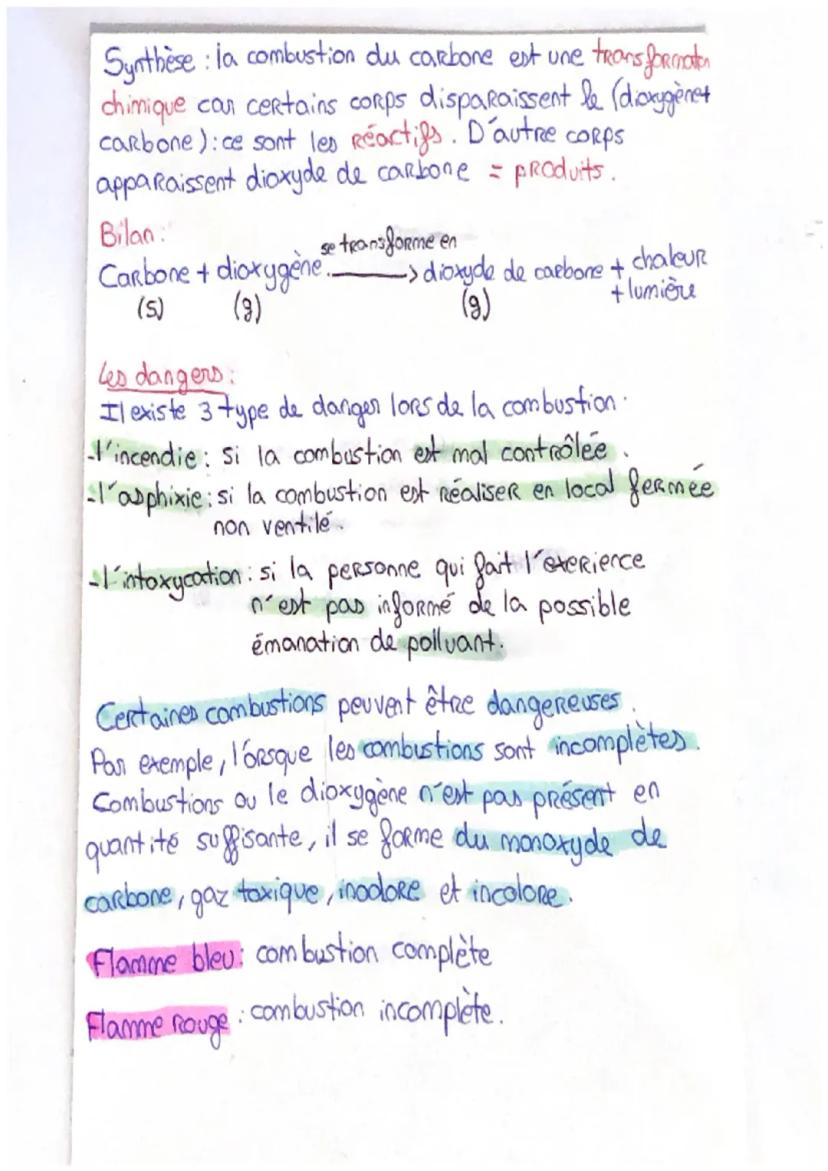 Synthèse : la combustion du carbone est une transformation
chimique car certains corps disparaissent le (dioxygène+
carbone) : ce sont les réactifs. D'autre corps
apparaissent dioxyde de carbone = produits.
Bilan :
se transforme en
Carbone + dioxygène. ———> dioxyde de carbone + chaleur
+ lumière
(s) (g) (g)
Les dangers :
Il existe 3 type de danger lors de la combustion.
-l'incendie : si la combustion est mal contrôlée.
-l'asphixie : si la combustion est réaliser en local fermée
non ventilé.
-l'intoxycation : si la personne qui fait l'exerience
n'est pas informé de la possible
émanation de polluant.
Certaines combustions peuvent être dangereuses.
Par exemple, l'orsque les combustions sont incomplètes.
Combustions ou le dioxygène n'est pas présent en
quantité suffisante, il se forme du monoxyde de
carbone, gaz toxique, inodore et incolore.
Flamme bleu : combustion complète
Flamme rouge : combustion incomplète.